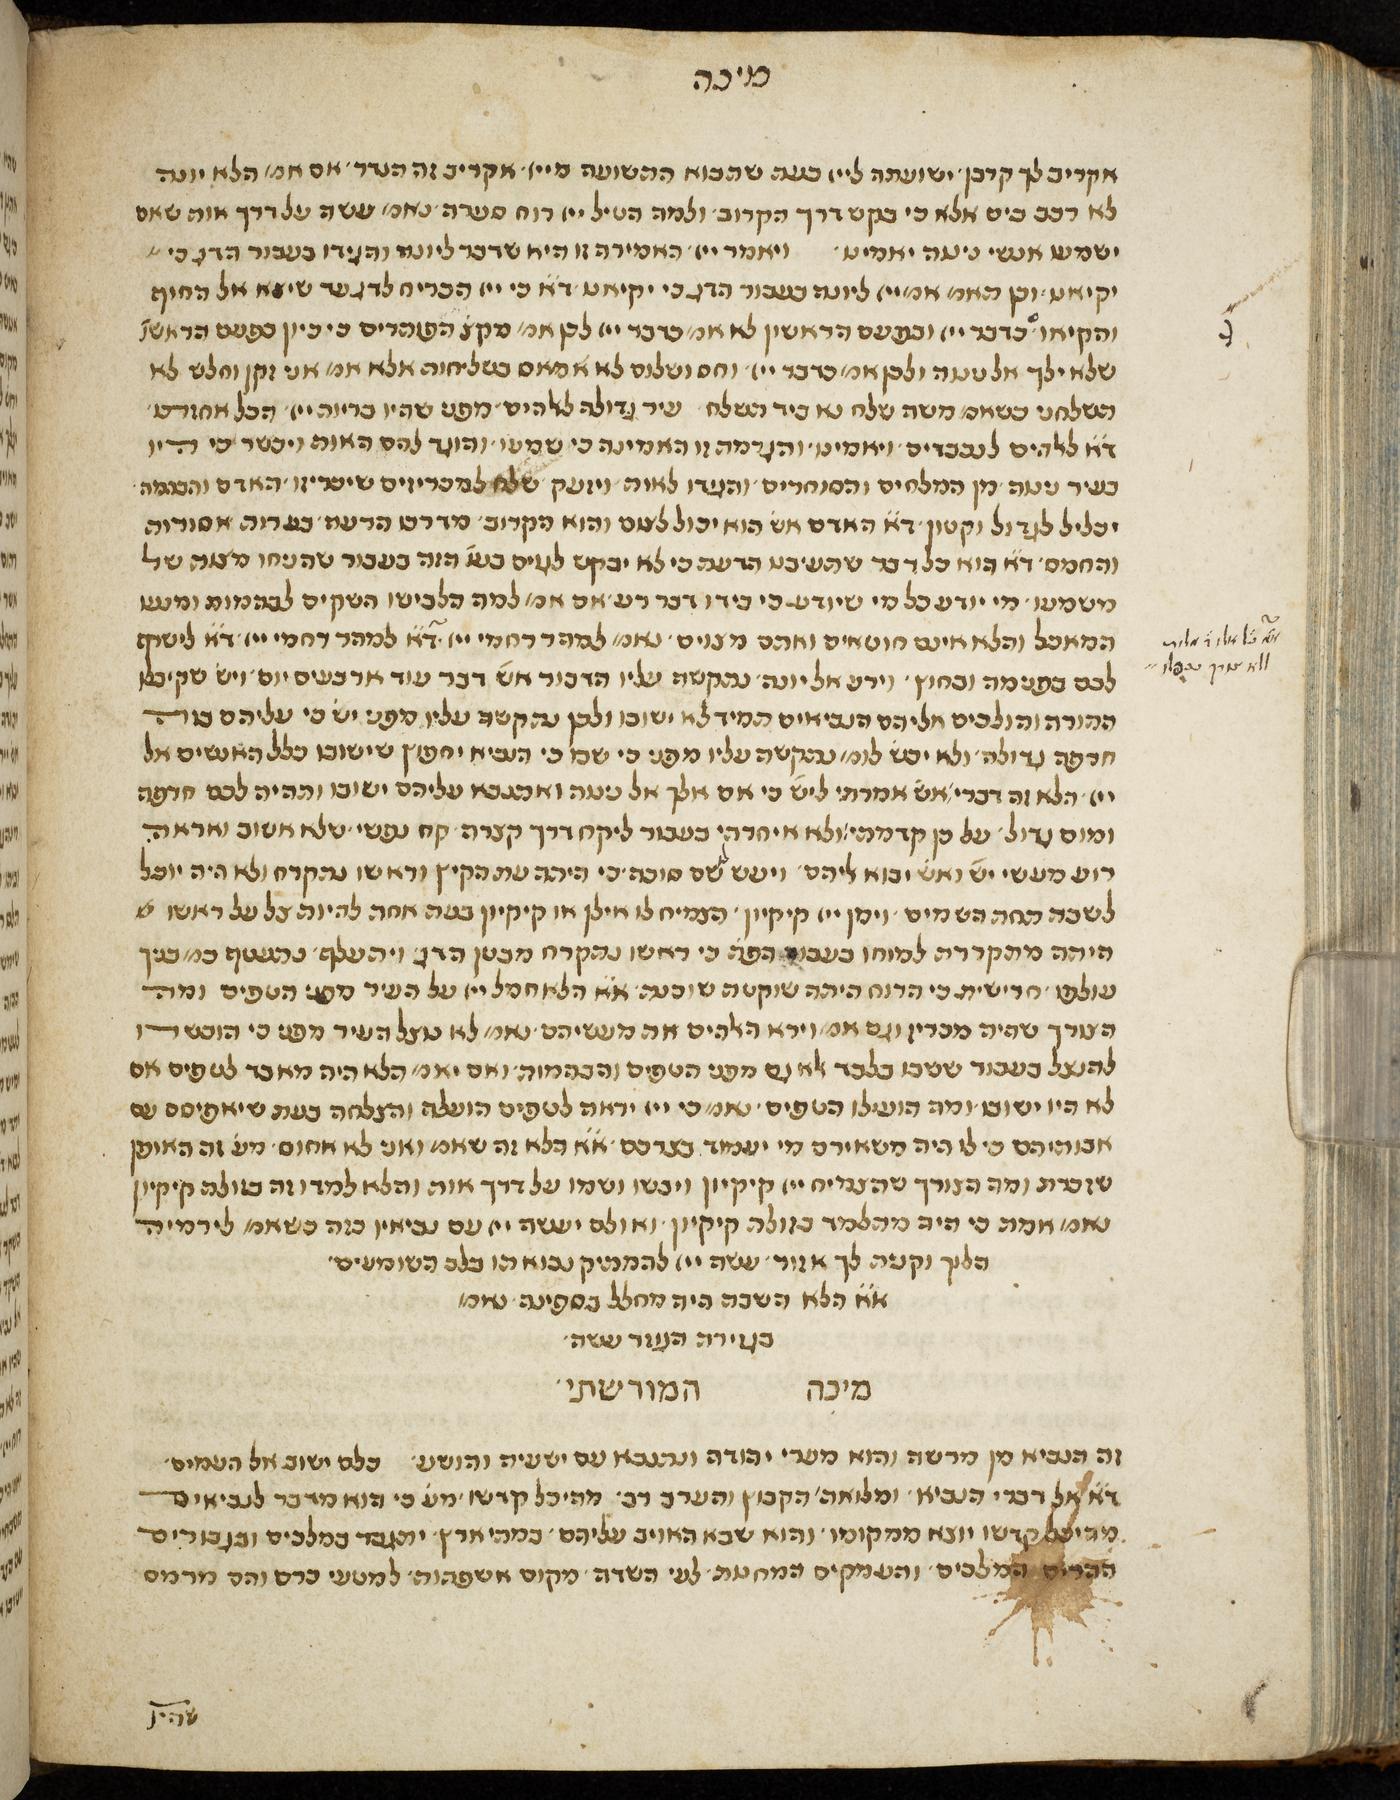 מיכה
אקריב לך קרבן׳ ישועתה לייי בעת שתבוא התשועה מייי׳ אקריב זה הנדר׳ אם אמ׳ הלא יונה
לא רכב בים אלא כי בקש דרך הקרוב׳ ולמה הטיל ייי רוח סערה׳ נאמ׳ עשה על דרך אות שאם
ישמעו אנשי נינוה יאמינו׳ ויאמר ייי׳ האמירה זו היא שדבר ליונה והגידו בעבור הדג כי
יקיאנו׳ וכן האמ׳ אמ׳ ייי ליונה בעבור הדג כי יקיאנו׳ ד״א כי ייי הכריח לדג עד שיצא אל החוף
והקיאו׳ כדבר ייי׳ ובפעם הראשון לא אמ׳ כדבר ייי לכן אמ׳ מקצ׳ הפותרים כי כיון בפעם הראשו׳
שלא ילך אל נינוה ולכן אמ׳ כדבר ייי׳ וחס ושלום לא מאס בשליחות אלא אמ׳ אני זקן וחלש לא
תשלחני כשאמ׳ משה שלח נא ביד תשלח׳ עיר גדולה לאלהים׳ מפני שהיו בריות ייי׳ הכל אחזרנו׳
ד״א לאלהים לנכבדים׳ ויאמינו׳ והגרמה זו האמינה כי שמעו׳ והוגד להם האות ויכשר כי היו
בעיר נינוה׳ מן המלחים והסוחרים׳ והגידו לאות׳ ויזעק׳ שלח למכריזים שיכריזו׳ האדם והבהמה׳
יכליל לגדול וקטון׳ ד״א האדם אש׳ הוא יכול לצום והוא הקרוב׳ מדרכו הרעה׳ בעריות אסורות
והחמס׳ ד״א הוא כל דבר שהטביע הרעה כי לא יבקש לקיים בעו׳ הזה בעבור שהניחו מצות של
משמעו׳ מי יודע כל מי שיודע כי בידו דבר רע׳ אם אמ׳ למה הלבישו השקים לבהמות ומנעו
המאכל והלא אינם חוטאים ואתם מצוים׳ נאמ׳ למהר רחמי ייי׳ ד״א למהר רחמי ייי׳ ד״א לישוף
לבם בפנימה ובחוץ׳ וירע אל יונה׳ נתקשה עליו הדבור אש׳ דבר עוד ארבעים יום׳ ויש׳ שקיבלו
התורה והולכים אליהם הנביאים תמיד לא ישובו ולכן נתקשה עליו מפני יש׳ כי עליהם בזה
חרפה גדולה׳ ולא יכש׳ לומ׳ נתקשה עליו מפני כי שבו כי הנביא יחפוץ שישובו כלל האנשים אל
ייי׳ הלא זה דברי׳ אש׳ אמרתי ליש׳ כי אם אלך אל נינוה ואתנבא עליהם ישובו ותהיה לכם חרפה
ומום גדול׳ על כן קדמתי׳ ולא איחרתי בעבור ליקח דרך קצרה׳ קח נפשי׳ שלא אשוב ואראה
רוע מעשי יש׳ ואש׳ יבוא ליהם׳ ויעש שם סוכה׳ כי היתה עת הקיץ וראשו נתקרח ולא היה יוכל
לשבת תחת השמים׳ וימן ייי קיקיון׳ הצמיח לו אילן או קיקיון בעת אחת להיות צל על ראשו
היתה מתקררת למוחו בעבור הפה כי ראשו נתקרח מבטן הדג׳ ויתעלף׳ נתעטף כמ׳ בניך
עולפו׳ חרישית׳ כי הרוח היתה שוקטה שוכנה׳ א״א הלא חמל ייי על העיר מפני הטפים ומה
הצורך שהיה מכריז וגם אמ׳ וירא האלהים את מעשיהם׳ נאמ׳ לא נצל העיר מפני כי הוכשרו
להנצל בעבור ששבו בלבד אלא גם מפני הטפים והבהמות׳ ואם יאמ׳ הלא היה מאבד לטפים אם
לא היו ישובו׳ ומה הועילו הטפים׳ נאמ׳ כי ייי יראה לטפים הועלה והצלחה בעת שיאפיסם עם
אבותיהם כי לו היה משאירם מי יעמוד בצרכם׳ א״א הלא זה שאמ׳ ואני לא אחוס׳ מע׳ זה האופן
שזכרת ומה הצורך שהצמיח ייי קיקיון ויבשו ושמו על דרך אות׳ והלא למדו זה בזולת קיקיון
נאמ׳ אמת כי היה מתלמד בזולת קיקיון׳ ואולם יעשה ייי עם נביאיו כזה כשאמ׳ לירמיה
הלוך וקנית לך אזור׳ עשה ייי להמתיק נבואתו בלב השומעים׳
א״א הלא השבת היה מחלל בספינה׳ נאמ׳
בגזירת הגוזר עשה׳
מיכה המורשתי׳
זה הנביא מן מרשה והוא מערי יהודה ונתנבא עם ישעיה והושע׳ כלם ישוב אל העמים׳
ד״א אל דברי הנביא׳ ומלואה׳ הקבוץ והערב רב׳ מהיכל קדשו׳ מע׳ כי הוא מדבר לנביאים
מהיכל קדשו יוצא ממקומו׳ והוא שבא האויב עליהם׳ במתי ארץ׳ יתגבר במלכים ובגבורים
ההרים׳ המלכים׳ והעמקים המחנות׳ לעי השדה׳ מקום אשפתות׳ למטעי כרם והם מרמס
שהיו